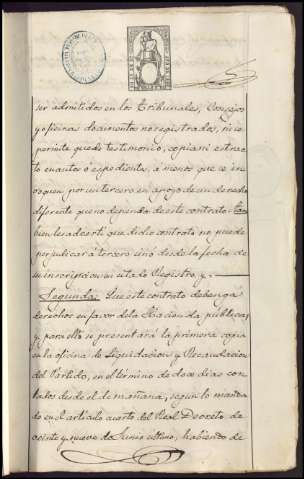 ser admitidos en los Tribunales, Consejos
y oficinas documentos no registrados, ni se
permita quede testimonio, copia ni extrac
to en autos ó espediente, á menos que se in
voquen por un tercero en apoyo de un derecho
diferente que no dependa de este contrato. Tam
bien les adverti que dicho contrato no puede
perjudicar á tercero sinó desde la fecha de
su inscripcion en citado Registro, y.
Segunda: Que este contrato devenga
derechos en favor de la Hacienda publica,
y para ello se presentará la primera copia
en la oficina de Liquidacion y Recaudacion
del Partido, en el término de doce dias con
tados desde el de mañana, segun lo manda
do en el artículo cuarto del Real Decreto de
veinte y nueve de Junio ultimo, habiendo de